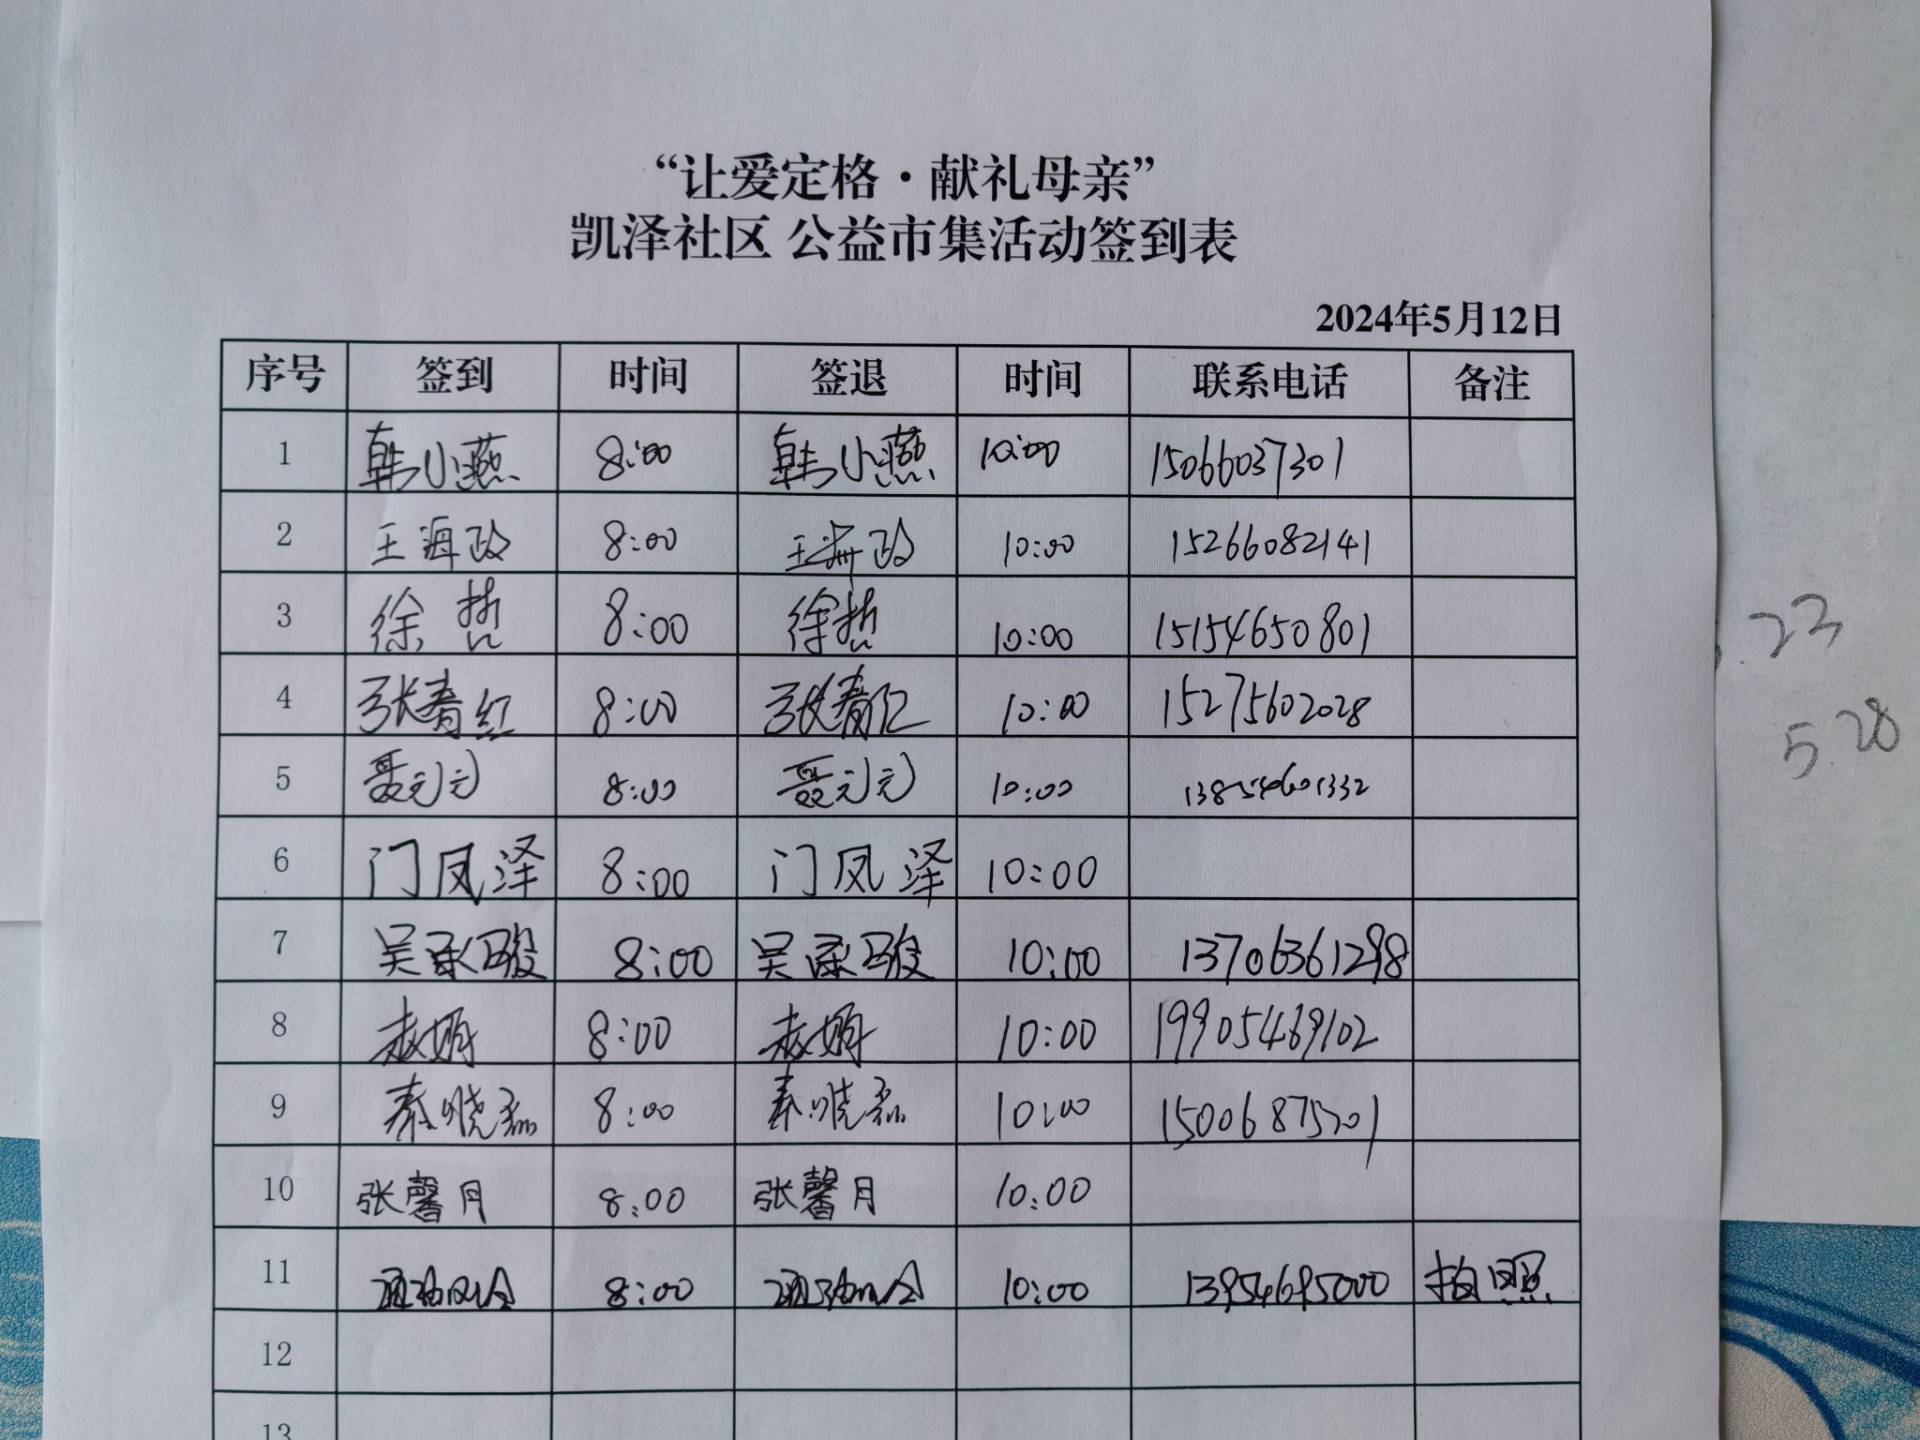 “让爱定格·献礼母亲”
凯泽社区 公益市集活动签到表
2024年5月12日
序号 签到 时间 签退 时间 联系电话 备注
1 韩小燕 8:00 韩小燕 10:00 15066037301
2 王海政 8:00 王海政 10:00 15266082141
3 徐哲 8:00 徐哲 10:00 15154650801
4 张春红 8:00 张春红 10:00 15275602028
5 聂元元 8:00 聂元元 10:00 13854601332
6 门凤泽 8:00 门凤泽 10:00
7 吴承骏 8:00 吴承骏 10:00 13706361298
8 8:00 10:00 19905469102
9 秦晓磊 8:00 秦晓磊 10:00 15006875201
10 张馨月 8:00 张馨月 10:00
11 8:00 10:00 13954695000 拍照
12
13
.23
5.28